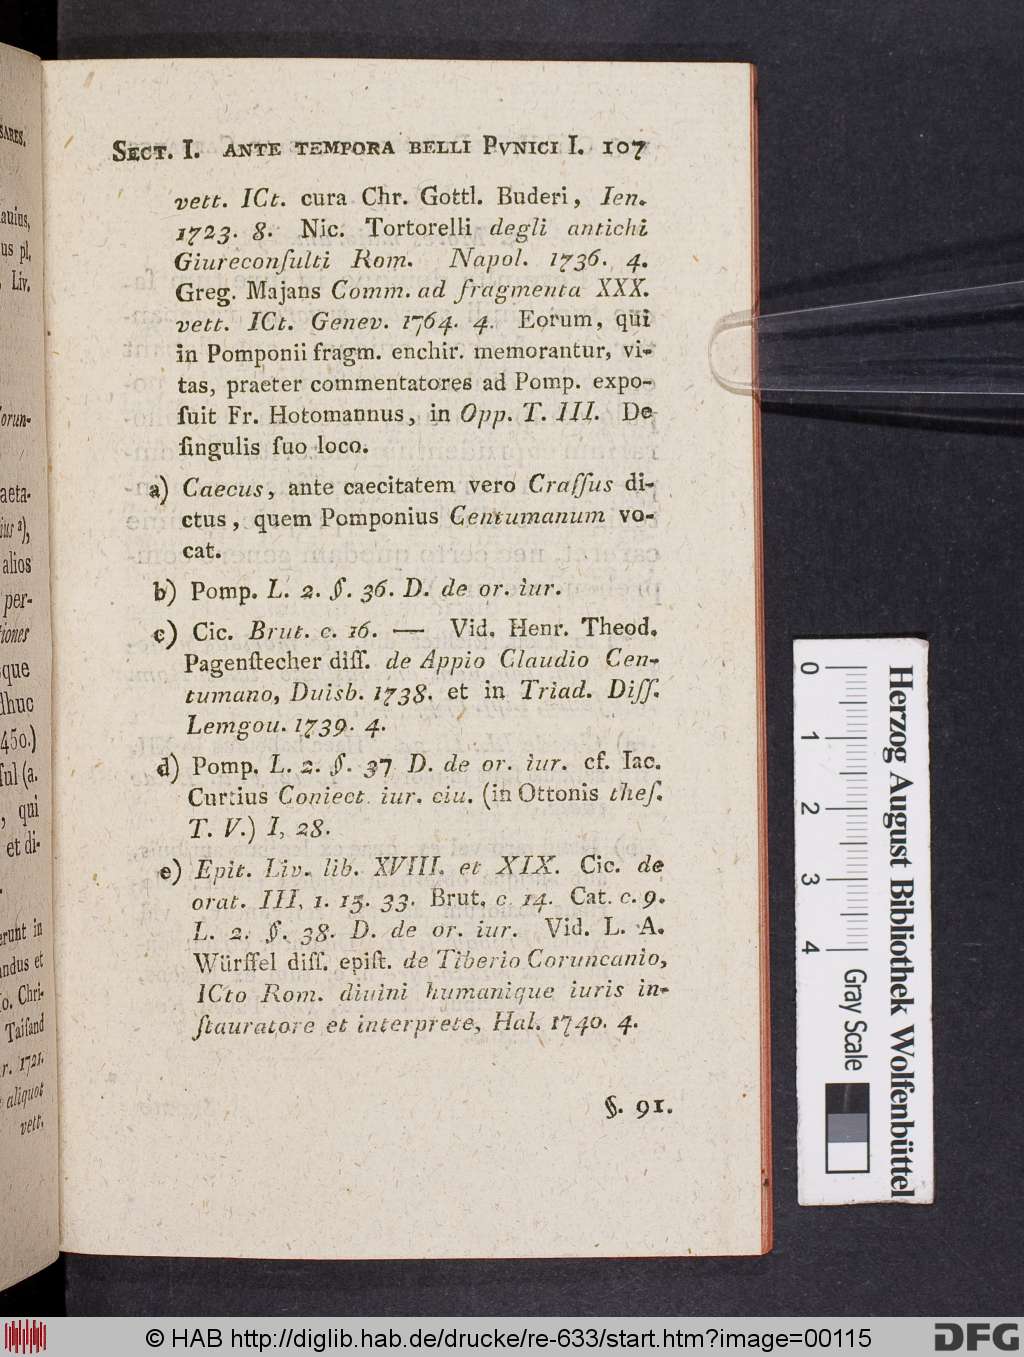 SECT. I. ANTE TEMPORA BELLI PVNICI I. 107
vett. ICt. cura Chr. Gottl. Buderi, Ien.
1723. 8. Nic. Tortorelli degli antichi
Giureconſulti Rom. Napol. 1736. 4.
Greg. Majans Comm. ad fragmenta XXX.
vett. ICt. Genev. 1764. 4. Eorum, qui
in Pomponii fragm. enchir. memorantur, vi-
tas, praeter commentatores ad Pomp. expo-
ſuit Fr. Hotomannus, in Opp. T. III. De
ſingulis ſuo loco.
a) Caecus, ante caecitatem vero Craſſus di-
ctus, quem Pomponius Centumanum vo-
cat.
b) Pomp. L. 2. §. 36. D. de or. iur.
c) Cic. Brut. c. 16. — Vid. Henr. Theod.
Pagenſtecher diſſ. de Appio Claudio Cen-
tumano, Duisb. 1738. et in Triad. Diſſ.
Lemgou. 1739. 4.
d) Pomp. L. 2. §. 37 D. de or. iur. cf. Iac.
Curtius Coniect. iur. ciu. (in Ottonis theſ.
T. V.) I, 28.
e) Epit. Liv. lib. XVIII. et XIX. Cic. de
orat. III, 1. 15. 33. Brut. c. 14. Cat. c. 9.
L. 2. §. 38. D. de or. iur. Vid. L. A.
Würſſel diſſ. epiſt. de Tiberio Coruncanio,
ICto Rom. diuini humanique iuris in-
ſtauratore et interprete, Hal. 1740. 4.
§. 91.
SARES.
us pl,
Liv.
alios
per-
tiones
que
dhuc
450.)
ſul (a.
, qui
et di-
erunt in
andus et
Io. Chri-
Taiſand
r. 1721.
aliquot
vett.
0 1 2 3 4
Gray Scale
Herzog August Bibliothek Wolfenbüttel
© HAB http://diglib.hab.de/drucke/re-633/start.htm?image=00115
DFG